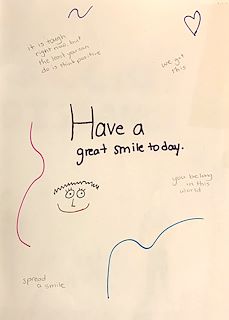 it is tough
right now, but
the least you can
do is think positive
we got
this
Have a
great smile today.
you belong
in this
world
spread
a smile